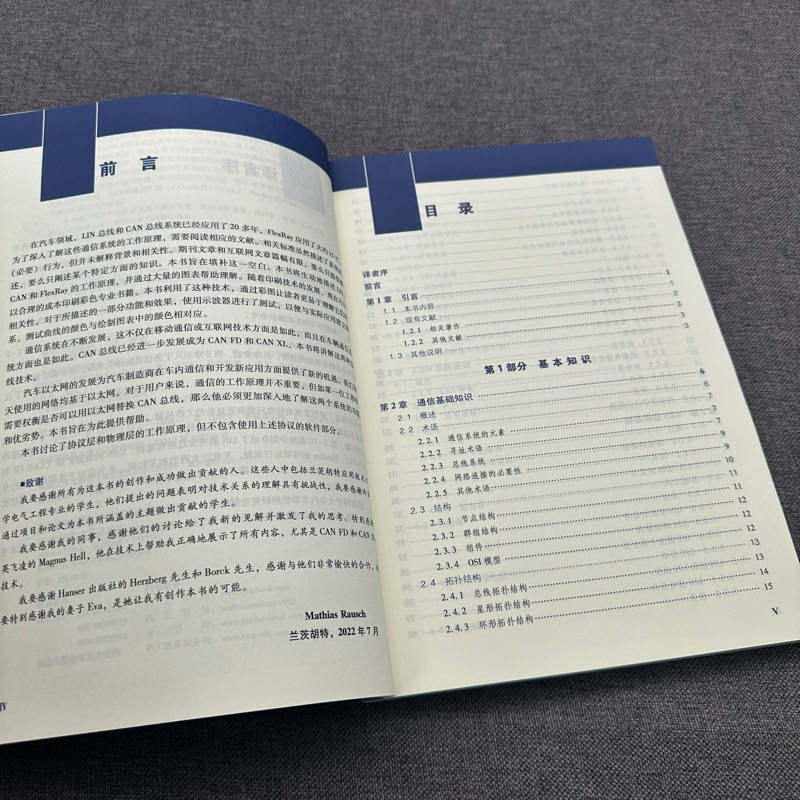 前 言
在汽车领域，LIN 总线和 CAN 总线系统已经应用了 20 多年，FlexRay 应用了大约
为了深入了解这些通信系统的工作原理，需要阅读相应的文献。相关标准虽然描述了
（必要）行为，但并未解释背景和相关性。期刊文章和互联网文章篇幅有限，
述，要么只阐述某个特定方面的知识。本书旨在填补这一空白。本书将生动地
CAN 和 FlexRay 的工作原理，并通过大量的图表帮助理解。随着印刷技术的发展，
以合理的成本印刷彩色专业书籍。本书利用了这种技术，通过彩图让读者更易于理解
相关性。对于所描述的一部分功能和效果，使用示波器进行了测试，以便与实际应用建立
系。测试曲线的颜色与绘制图表中的颜色相对应。
通信系统在不断发展，这不仅在移动通信或互联网技术方面是如此，而且在车辆通信
统方面也是如此。CAN 总线已经进一步发展成为 CAN FD 和 CAN XL，本书将讲解这两种
线技术。
汽车以太网的发展为汽车制造商在车内通信和开发新应用方面提供了新的机遇。我们
天使用的网络均基于以太网。对于用户来说，通信的工作原理并不重要，但如果一位工程师
需要权衡是否可以用以太网替换 CAN 总线，那么他必须更加深入地了解这两个系统的
和优劣势。本书旨在为此提供帮助。
本书讨论了协议层和物理层的工作原理，但不包含使用上述协议的软件部分。
■致谢
我要感谢所有为这本书的创作和成功做出贡献的人。这些人中也包括兰茨胡特应用技术
学电气工程专业的学生，他们提出的问题表明对技术关系的理解具有挑战性，我要感谢
通过项目和论文为本书所涵盖的主题做出贡献的学生。
我要感谢我的同事，感谢他们的讨论给了我新的见解并激发了我的思考。特别
英飞凌的 Magnus Hell，他在技术上帮助我正确地展示了所有内容，尤其是 CAN FD 和 CAN
技术。
我要感谢 Hanser 出版社的 Herzberg 先生和 Borck 先生，感谢与他们非常愉快的合作。
要特别感谢我的妻子 Eva，是她让我有创作本书的可能。
Mathias Rausch
兰茨胡特，2022 年 7 月
IV
目 录
译者序
前言
第 1 章 引言 1
1.1 本书内容 1
1.2 现有文献 2
1.2.1 相关著作 2
1.2.2 其他文献 2
1.3 其他说明 3
第 1 部分 基本知识
第 2 章 通信基础知识 6
2.1 概述
2.2 术语
2.2.1 通信系统的元素
2.2.2 寻址术语
2.2.3 总线系统
2.2.4 网络连接的必要性 9
2.2.5 其他术语 10
2.3 结构 11
2.3.1 节点结构 11
2.3.2 群组结构 12
2.3.3 组件 12
2.3.4 OSI 模型 12
2.4 拓扑结构 13
2.4.1 总线拓扑结构 13
2.4.2 星形拓扑结构 14
2.4.3 环形拓扑结构 15
V